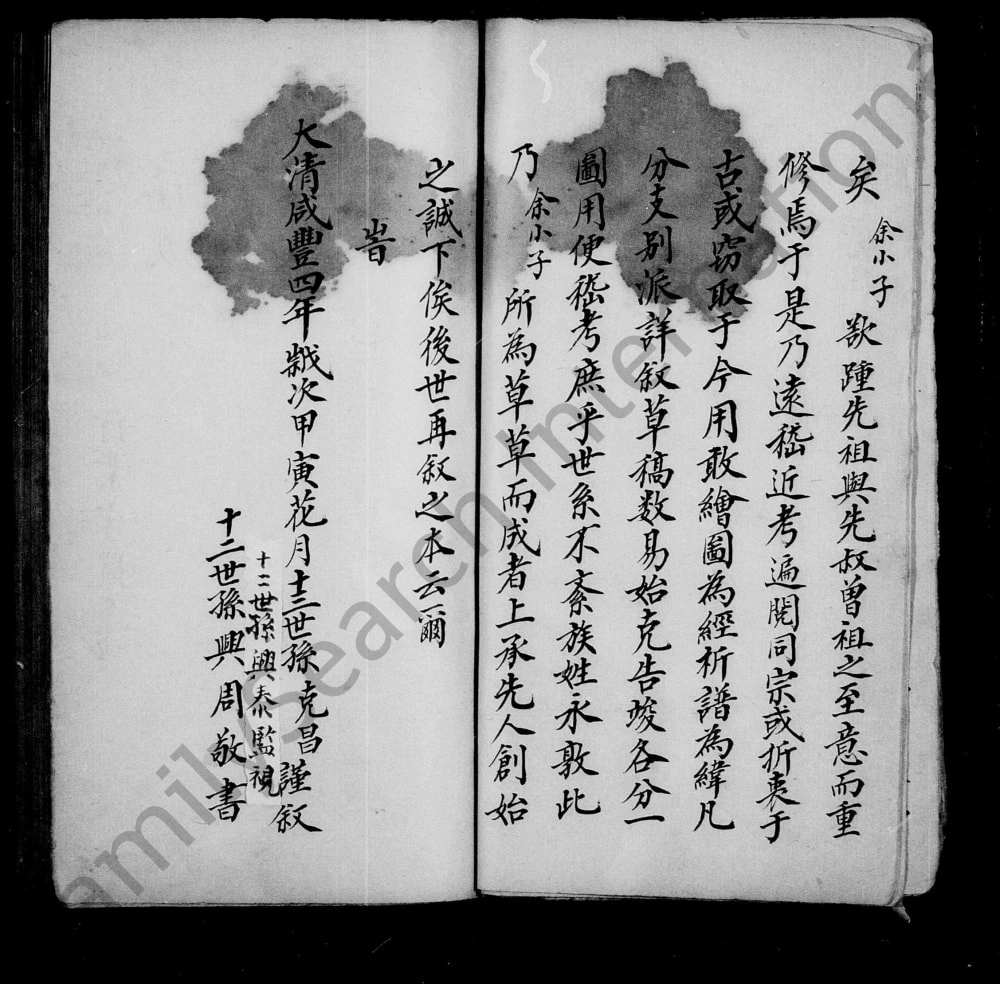 矣余小子欲踵先祖與先叔曾祖之至意而重
修焉于是乃遠嵇近考遍閱同宗或折衷于
古或竊取于今用敢繪圖為經析譜為緯凡
分支别派詳叙草稿数易始克告竣各分一
圖用便嵇考庶乎世系不紊族姓永敦此
乃余小子所為草草而成者上承先人創始
之誠下俟後世再叙之本云爾
旹
大清咸豐四年歲次甲寅花月十三世孫克昌謹叙
十二世孫興泰監視
十二世孫興周敬書
FamilySearch International